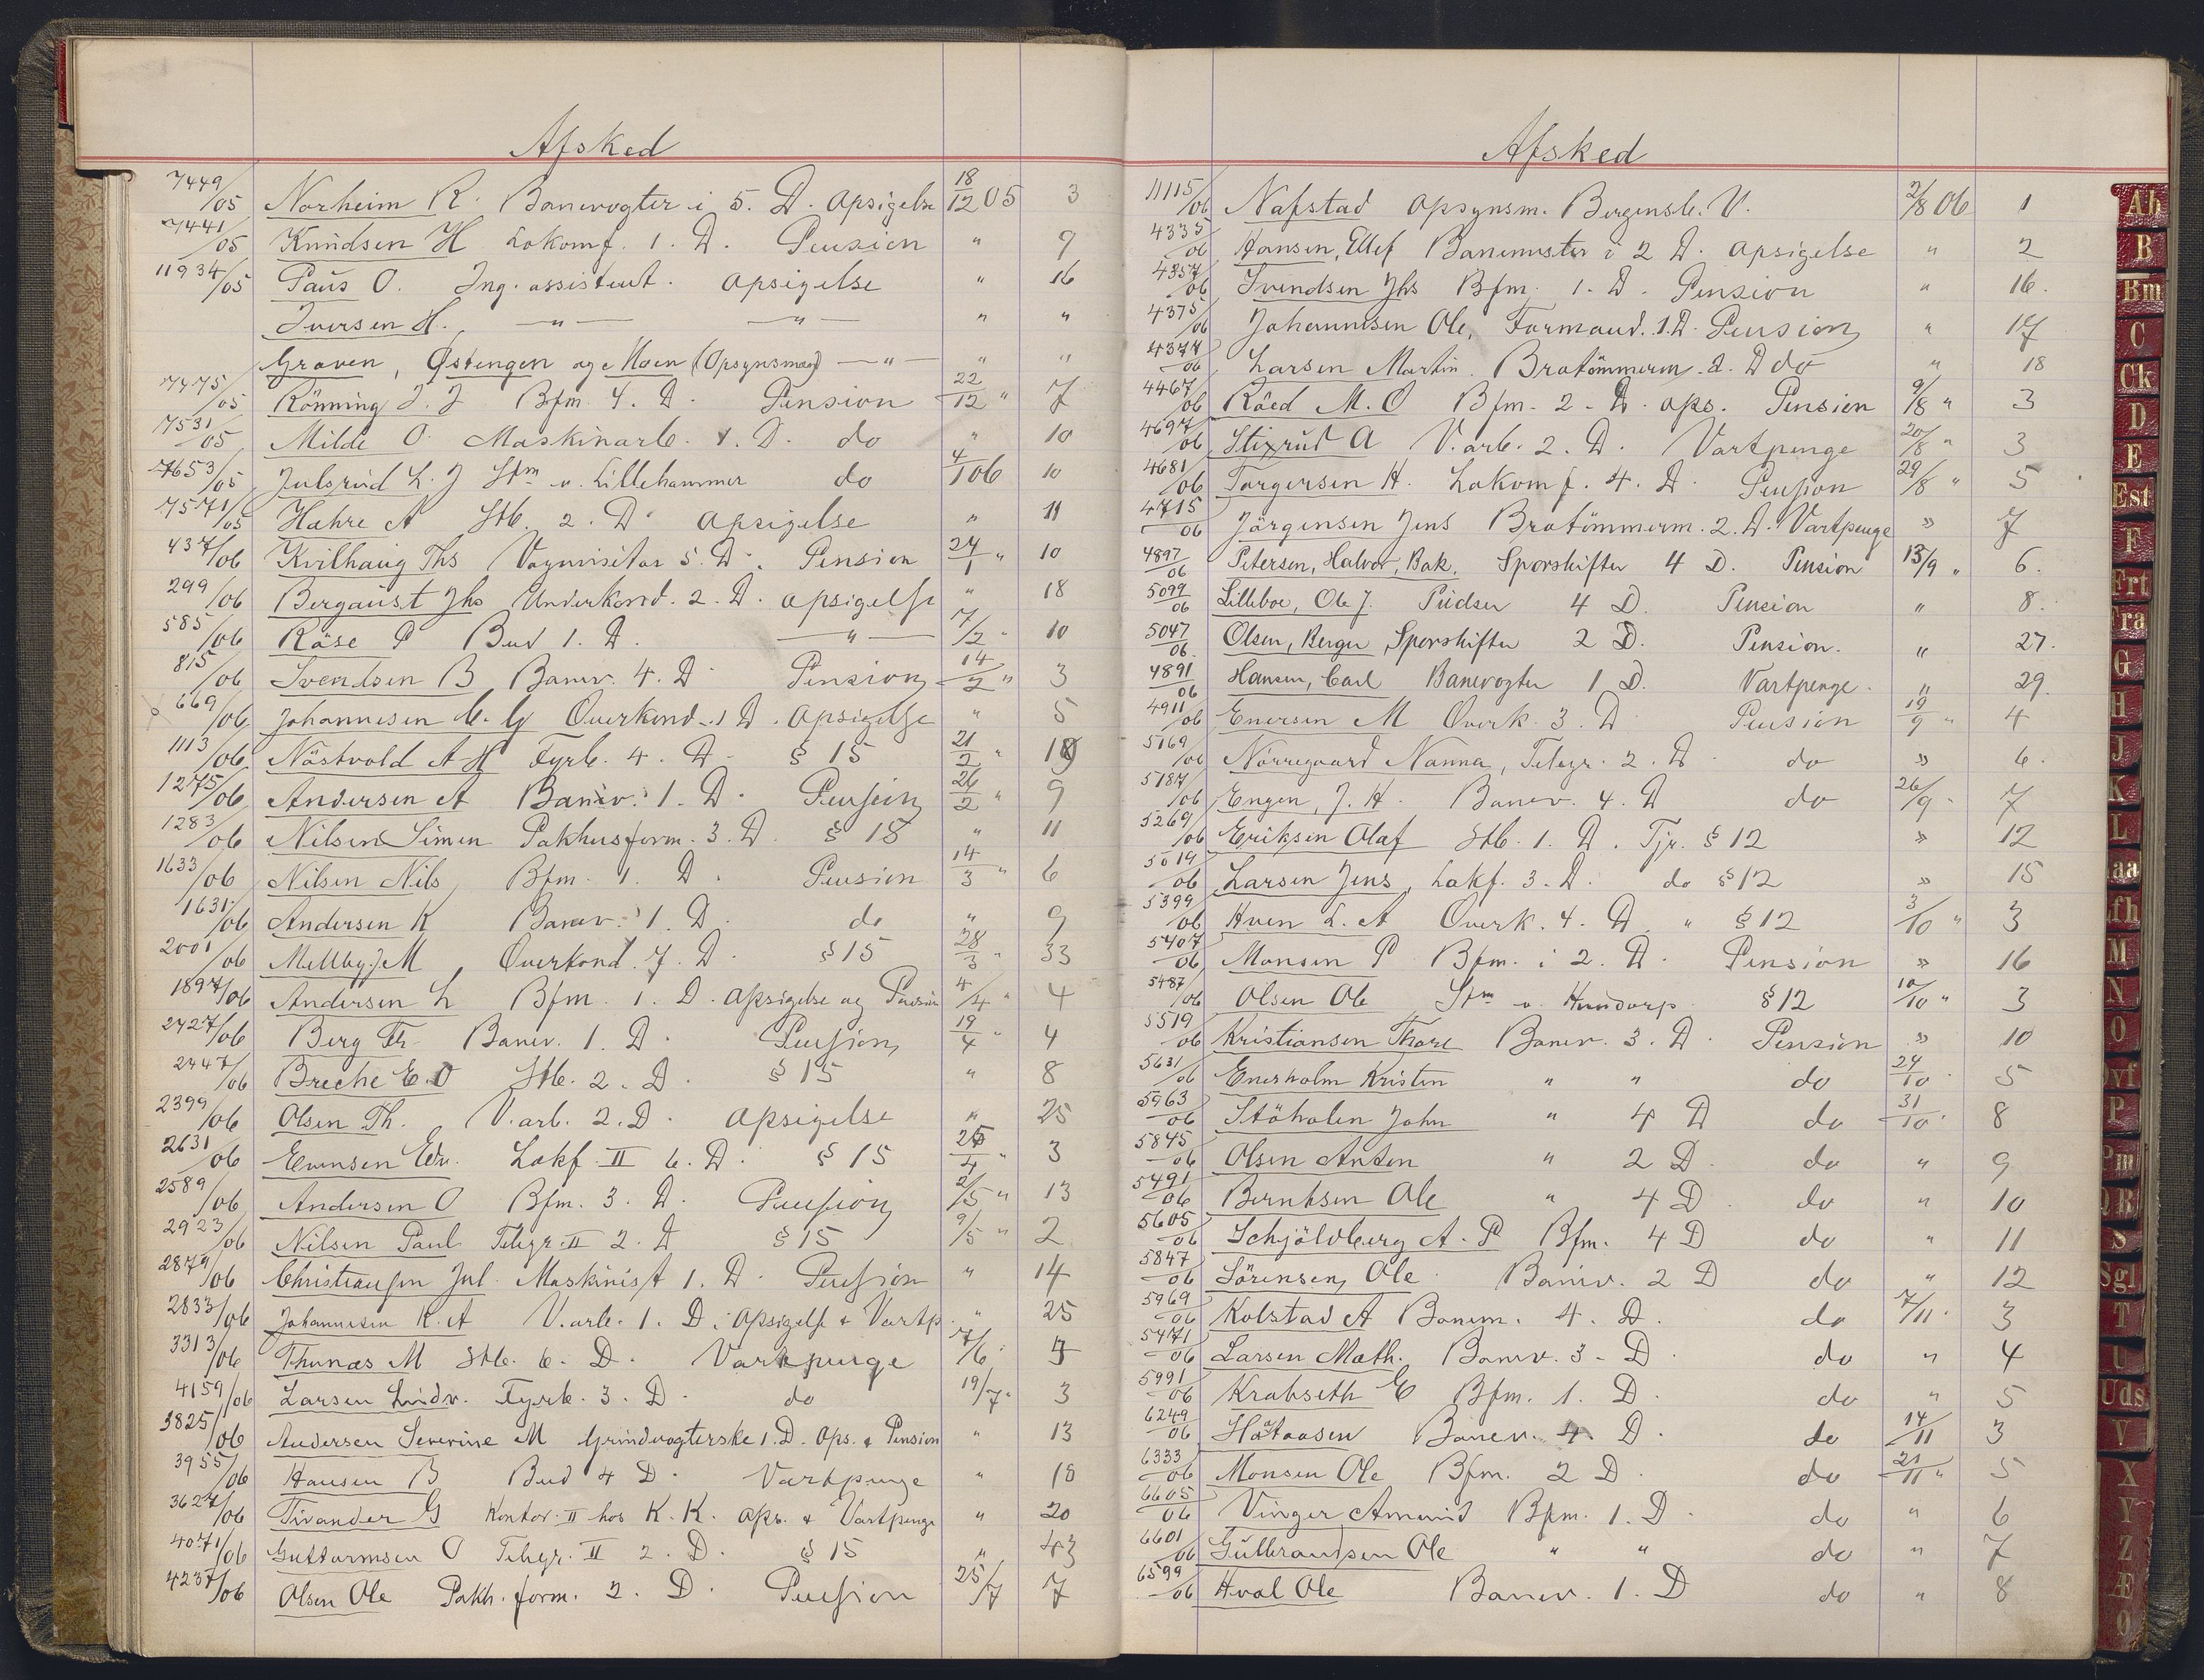 Afsked
7449/05 Norheim R. Banevogter i 5. D. Opsigelse 18/12 05 3
7441/05 Knudsen H Lokomf. 1. D. Pension " 9
11934/05 Paus O. Ing. assistent. Opsigelse " 16
Iversen H. —"— —"— " "
Graven, Østengen og Moen (Opsynsmænd) —"— " "
7475/05 Rönning J. J Bfm. 4. D. Pension 22/12 " 7
7531/05 Milde O. Maskinarb. 1. D. do " 10
7653/05 Julsrud L. J Stm v. Lillehammer do 4/1 06 10
7571/05 Hæhre A Stb. 2. D. Opsigelse " 11
437/06 Kvilhaug Ths Vognvisitør 5. D. Pension 24/1 " 10
299/06 Bergaust Jhs Underkond. 2. D. Opsigelse " 18
585/06 Råse P Bud 1. D. —"— 7/2 " 10
815/06 Svendsen B Banev. 4. D. Pension 14/2 " 3
669/06 Johannesen C. G Overkond. 1 D. Opsigelse " 5
1113/06 Nästvold A H Fyrb. 4. D. § 15 21/2 "
1275/06 Andersen A Banev. 1. D. Pension 26/2 " 9
1283/06 Nilsen Simen Pakhusform. 3. D. § 15 " 11
1633/06 Nilsen Nils Bfm. 1. D. Pension 14/3 " 6
1631/06 Andersen K Banev. 1. D. do " 9
2001/06 Mellby J M Overkond. 7. D. § 15 28/3 " 33
1897/06 Andersen L Bfm. 1. D. Opsigelse og Pension 4/4 " 4
2427/06 Berg Fr Banev. 1. D. Pension 19/4 " 4
2447/06 Breche E. O Stb. 2. D. § 15 " 8
2399/06 Olsen Th. V. arb. 2. D. Opsigelse " 25
2631/06 Evensen Edv. Lokf. II 6. D. § 15 25/4 " 3
2589/06 Andersen O Bfm. 3. D. Pension 2/5 " 13
2923/06 Nilsen Paul Telegr. II 2. D § 15 9/5 " 2
2879/06 Christiansen Jul. Maskinist 1. D. Pension " 14
2833/06 Johannesen K. A V. arb. 1. D. Opsigelse & Vartp. " 25
3313/06 Thunæs M Stb. 6. D. Vartpenge 7/6 "
4159/06 Larsen Ludv. Fyrb. 3. D. do 19/7 " 3
3825/06 Andersen Severine M Grindvogterske 1. D. Ops. & Pension " 13
3955/06 Hansen B Bud 4 D. Vartpenge " 18
3627/06 Tivander G Kontor. II hos K. K. Ops. & Vartpenge " 20
4071/06 Guttormsen O Telegr. II 2. D. § 15 " 43
4237/06 Olsen Ole Pakh. form. 2. D. Pension 25/7 7
Afsked
11115/06 Nafstad Opsynsm. Bergensb. V. 2/8 06 1
4335/06 Hansen, Ellef Banemester i 2 D. Opsigelse " 2
4357/06 Svendsen Jhs Bfm. 1. D. Pension " 16.
4375/06 Johannesen Ole, Formand. 1. D. Pension " 17
4377/06 Larsen Martin. Brotömmerm. 2. D do " 18
4467/06 Röed M. O Bfm. 2. D. Ops. Pension 9/8 " 3
4697/06 Stixrud A V. arb. 2. D. Vartpenge 20/8 " 3
4681/06 Torgersen H. Lokomf. 4. D. Pension 29/8 " 5
4715/06 Jörgensen Jens Brotömmerm. 2. D. Vartpenge " 7
4897/06 Petersen, Halvor, Bak. Sporskifter 4 D. Pension 13/9 " 6.
5099/06 Lilleboe, Ole J. Pudser 4 D. Pension " 8.
5047/06 Olsen, Berger Sporskifter 2 D. Pension. " 27.
4891/06 Hansen, Carl Banevogter 1 D. Vartpenge. " 29.
4911/06 Enersen M Overk. 3. D Pension 19/9 " 4
5169/06 Nörregaard Nanna, Telegr. 2. D do " 6.
5187/06 Engen, J. H. Banev. 4. D do 26/9 " 7
5269/06 Eriksen Olaf Stb. 1. D. Tjr. § 12 " 12
5019/06 Larsen Jens, Lokf. 3. D. do § 12 " 15
5399/06 Hven L. A Overk. 4. D " § 12 3/10 " 3
5407/06 Monsen P Bfm. i 2. D. Pension " 16
5487/06 Olsen Ole Stm v. Hundorp § 12 10/10 " 3
5519/06 Kristiansen Thore Banev. 3. D. Pension " 10
5631/06 Enerholm Kristen " " do 24/10 " 5
5963/06 Stöholen John " 4 D do 31/10 " 8
5845/06 Olsen Anton " 2 D. do " 9
5491/06 Berntsen Ole " 4 D. do " 10
5605/06 Schjöldberg A. P Bfm. 4 D do " 11
5847/06 Sörensen, Ole Banev. 2 D do " 12
5969/06 Kolstad A Banem. 4. D. do 7/11 " 3
5471/06 Larsen Math. Banev. 3. D. do " 4
5991/06 Krabseth E Bfm. 1. D. do " 5
6249/06 Håtaasen Banev. 4. D. do 14/11 3
6333/06 Monsen Ole Bfm. 2 D. do 21/11 " 5
6605/06 Vinger Amund Bfm. 1. D. do " 6
6601/06 Gulbrandsen Ole " " do " 7
6599/06 Hval Ole Banev. 1. D do " 8
Ab
B
Bm
C
Ck
D
E
Est
F
Frt
G
H
J
K
L
M
N
O
P
QR
S
Sgl
T
U
Uds
V
X
Y
Z
Æ
Ø